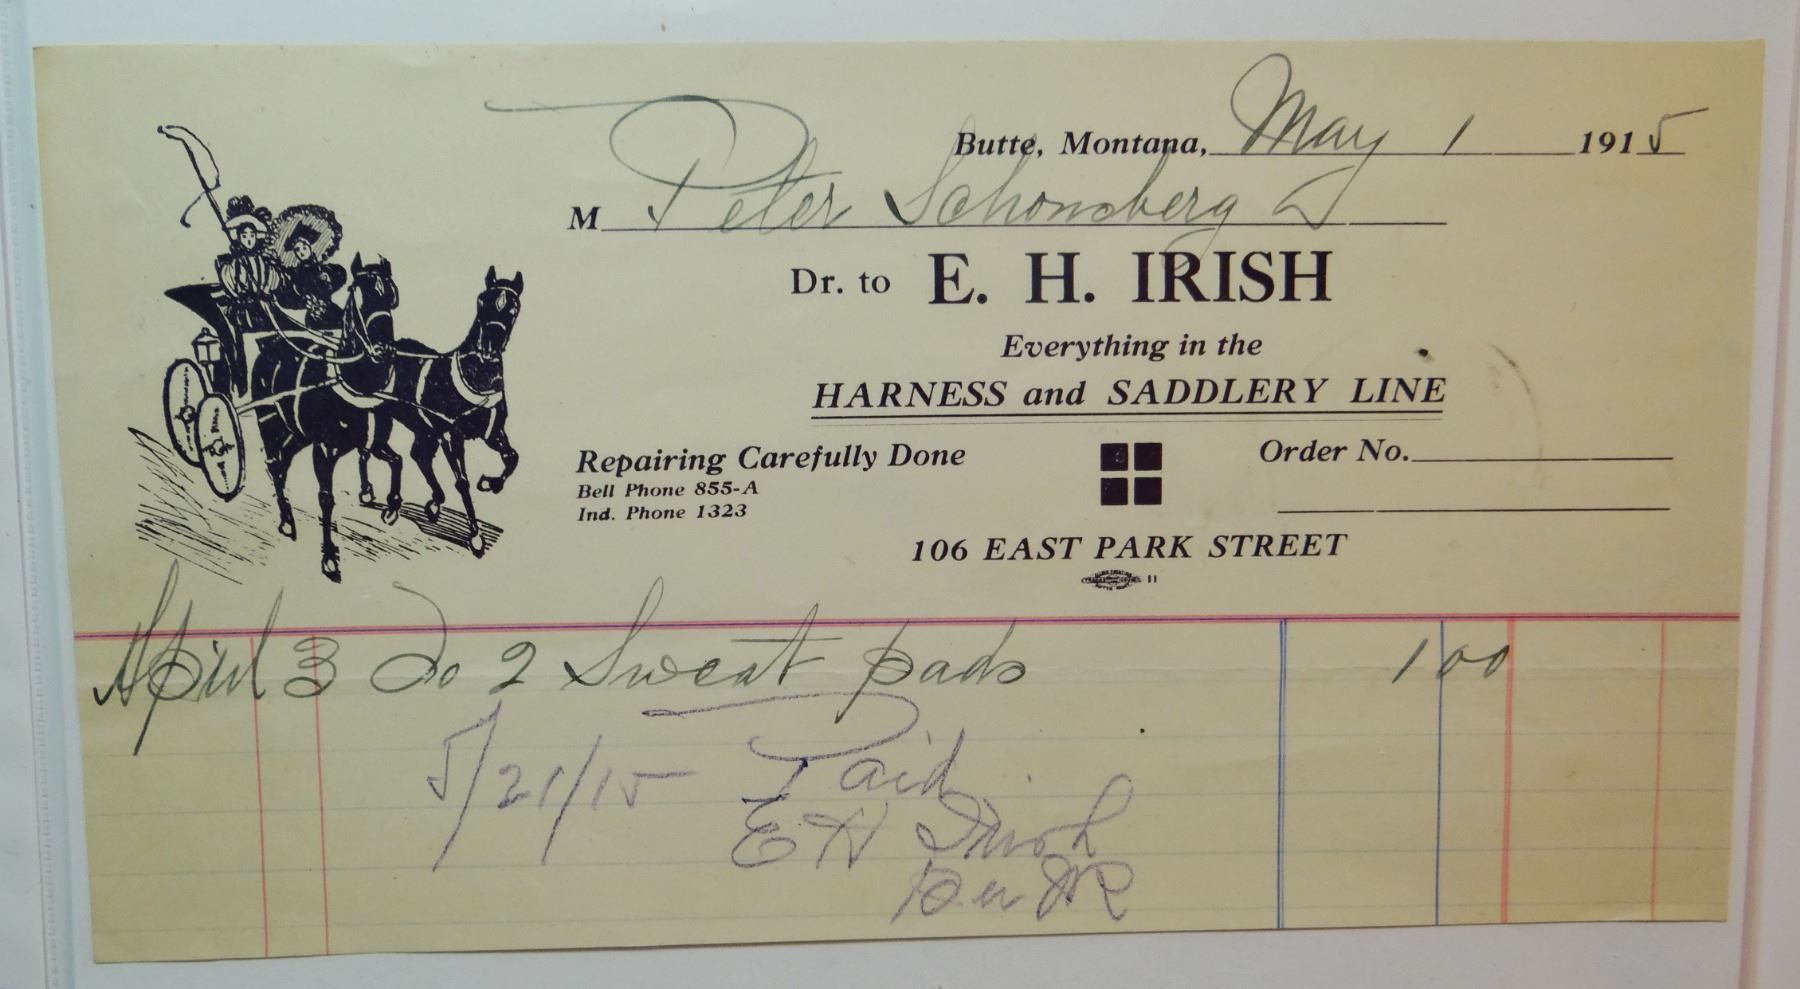 Butte, Montana, May 1 1915
M Peter Schonsberg
Dr. to E. H. IRISH
Everything in the
HARNESS and SADDLERY LINE
Repairing Carefully Done
Bell Phone 855-A
Ind. Phone 1323
Order No.
106 EAST PARK STREET
11
April 3 To 2 Sweat pads 1 00
5/21/15 Paid
E H Irish
Per